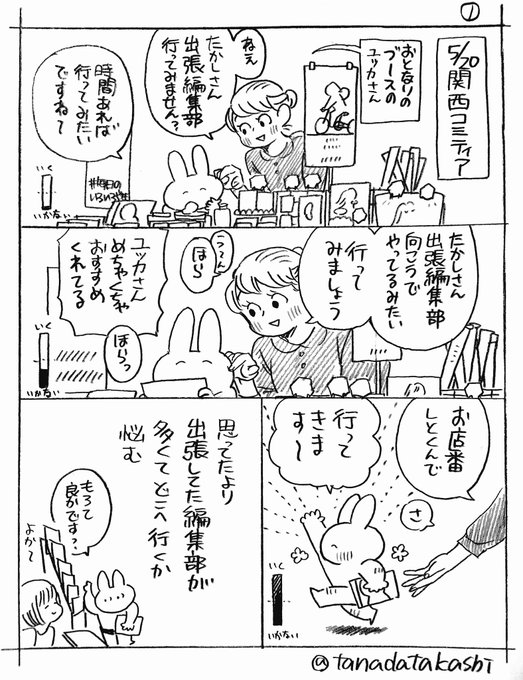 ①
5/20関西コミティア
おとなりの
ブースの
ユッカさん
ねぇ
たかしさん
出張編集部
行ってみません?
時間あれば
行ってみたい
ですねぇ
いかない
たかしさん
出張編集部
向こうで
やってるみたい
行って
みましょう
うーん
ほら
ユッカさん
めちゃくちゃ
おすすめ
くれてる
ほらっ
いく
いかない
お店番
しとくんで
さ
行って
きま
す〜
いく
いかない
思ってたより
出張してた編集部が
多くてどこへ行くか
悩む
もろて
良かです?
よか〜
@tanadatakashi